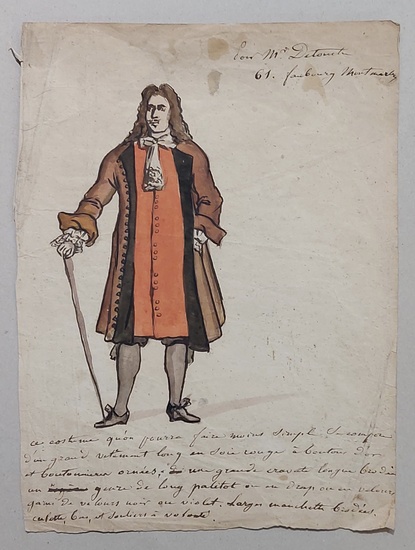 Pour Mr Detouche
61. faubourg Montmartre
ce costume qu'on pourra faire moins simple. Se compose
d'un grand vêtement long en Soie rouge à boutons d'or
et boutonnieres ornées; une grande cravate longue brodée
un genre de long paletot ou en drap ou en velours,
garni de velours noir ou violet. Larges manchettes brodées.
culotte, bas, et souliers à volonté.